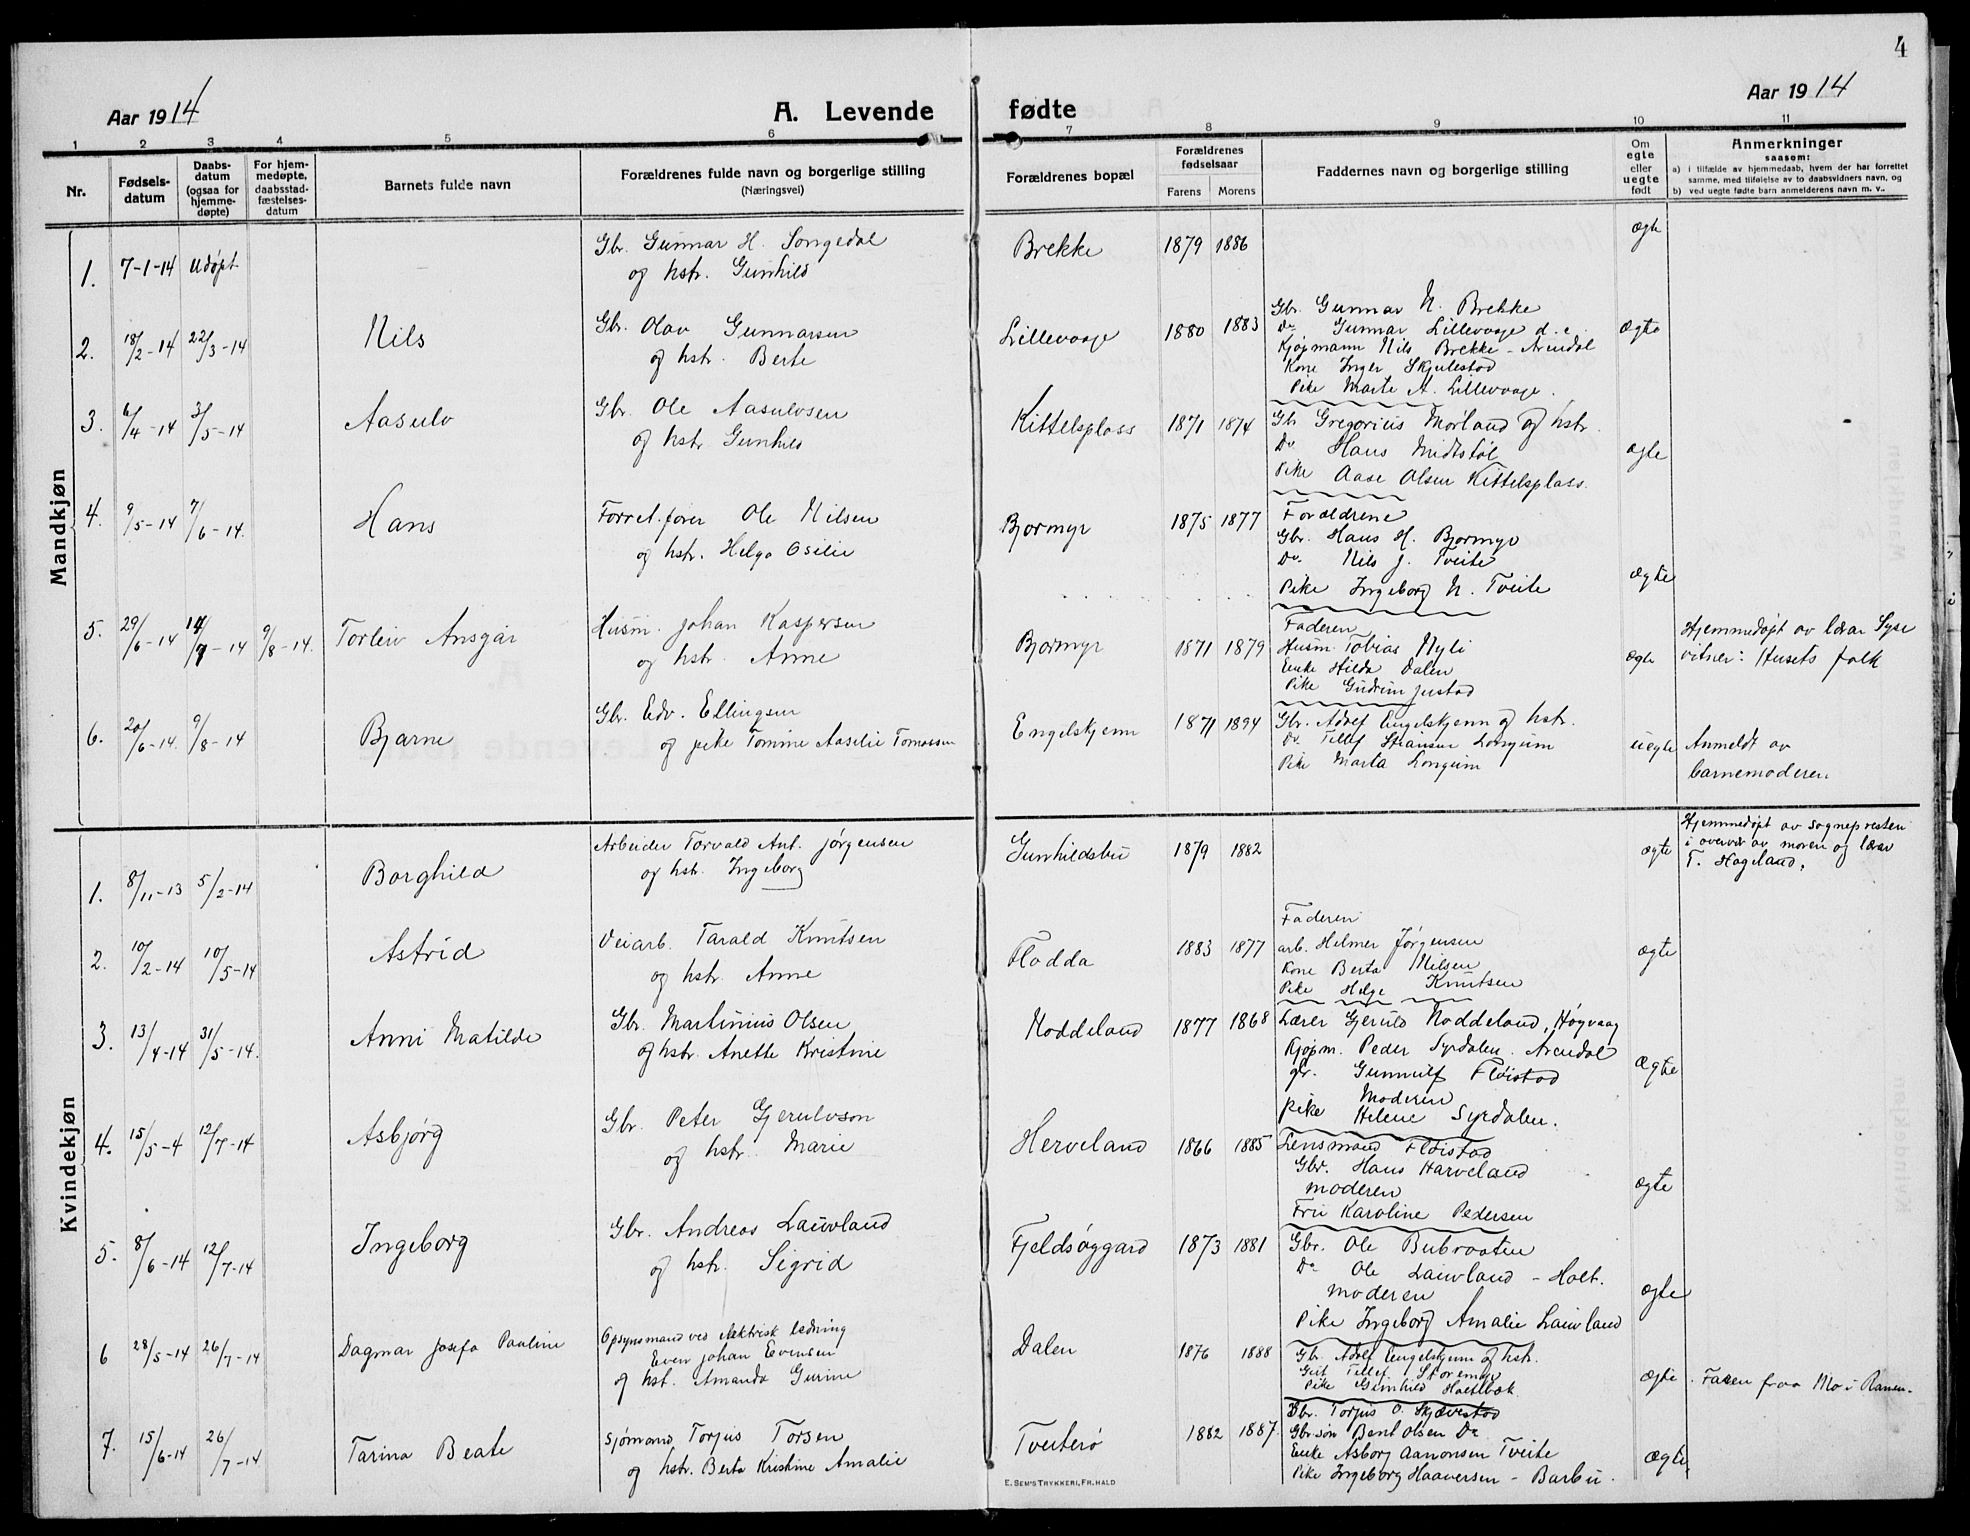 4
Aar 1914
A. Levende fødte
Aar 1914
1 2 3 4 5 6 7 8 9 10 11
Nr.
Fødsels-
datum
Daabs-
datum
(ogsaa for
hjemme-
døpte)
For hjem-
medøpte,
daabsstad-
fæstelses-
datum
Barnets fulde navn
Forældrenes fulde navn og borgerlige stilling
(Næringsvei)
Forældrenes bopæl
Forældrenes
fødselsaar
Farens Morens
Faddernes navn og borgerlige stilling
Om
egte
eller
uegte
født
Anmerkninger
saasom:
a) i tilfælde av hjemmedaab, hvem der har forrettet
samme, med tilføielse av to daabsvidners navn, og
b) ved uegte fødte barn anmelderens navn m. v..
Mandkjøn
1. 7-1-14 Udøpt
Gbr. Gunnar H. Songedal
og hstr. Gunhild
Brekke 1879 1886
ægte
2. 18/2-14 22/3-14 Nils
Gbr. Olav Gunnarsen
og hstr. Berte
Lillevaage 1880 1883
Gbr. Gunnar N. Brekke
Do Gunnar Lillevaage d.e.
Kjøpmann Nils Brekke - Arendal
Kone Inger Skjulestad
Pike Marte A. Lillevaage.
ægte
3. 6/4-14 3/5-14 Aasulv
Gbr. Ole Aasulvsen
og hstr Gunhild
Kittelsplass 1871 1874
Gbr Gregorius Mørland og hstr.
Do Hans Midtstøl
Pike Aase Olsen Kittelsplass.
ægte
4. 9/5-14 7/6-14. Hans
Forret.fører Ole Nilsen
og hstr. Helga Osilie
Bjormyr 1875 1877
Forældrene
Gbr. Hans H. Bjormyr
Do. Nils J. Tveite
Pike Ingeborg N. Tveite
ægte
5. 29/6-14 14/7-14 9/8-14. Torleiv Ansgar
Husm. Johan Kaspersen
og hstr. Anne
Bjormyr 1871 1879
Faderen
Husm. Tobias Myli
Enke Hilda Dalen
Pike Gudrun Justad
ægte
Hjemmedøpt av lærar Syse
vitner: Husets folk
6. 20/6-14. 9/8-14 Bjarne
Gbr. Edv. Ellingsen
og pike Tomine Aaselie Tomassen
Engelskjenn 1871 1894
Gbr. Adolf Engelskjenn og hstr.
Do Tellef Stiansen Longum
Pike Marta Longum
uegte
Anmeldt av
barnemoderen
Kvindekjøn
1. 8/11-13 5/2-14 Borghild
Arbeider Torvald Ant. Jørgensen
og hstr. Ingeborg
Gunhildsbu 1879 1882
ægte
Hjemmedøpt av sognepresten
i overvær av moren og lærar
T. Hageland.
2. 10/2-14 10/5-14 Astrid
Veiarb. Tarald Knutsen
og hstr. Anne
Flodda 1883 1877
Faderen
arb. Helmer Jørgensen
Kone Berta Nilsen
Pike Helge Knutsen
ægte
3. 13/4-14 31/5-14. Anni Matilde
Gbr. Martinius Olsen
og hstr. Anette Kristine
Noddeland 1877 1868
Lærer Gjeruld Noddeland, Høgvaag
Kjøpm. Peder Syrdalen. Arendal
gbr. Gunnulf Fløistad
Moderen
Pike Helene Syrdalen.
Ægte
4. 15/5-4 12/7-14 Asbjørg
Gbr. Peter Gjerulvson
og hstr. Marie
Herveland 1866 1885
Lensmand Fløistad
Gbr. Hans Harveland
moderen
Fru Karoline Pedersen
ægte
5. 8/6-14 12/7-14 Ingeborg
Gbr. Andreas Lauvland
og hstr. Sigrid
Fjeldsøggard 1873 1881
Gbr. Ole Bubraaten
Do Ole Lauvland - Holt.
moderen
Pike Ingeborg Amalie Lauvland
ægte
6 28/5-14 26/7-14 Dagmar Josefa Pauline
Opsynsmand ved elektrisk ledning
Even Johan Evensen
og hst. Amanda Gurine
Dalen 1876 1888
Gbr. Adolf Engelskjenn og hstr.
Gut Tellef Storemyr
Pike Gunhild Holtebæk.
ægte
Faren fraa Mo i Ranen.
7. 15/6-14 26/7-14 Tarina Beate
Sjømand Torjus Torsen
og hstr. Berta Kristine Amalie
Tveiterø 1882 1887.
Gbr. Torjus O. Skjævestad
Gbr.søn Bent Olsen Do
Enke Asborg Aanonsen Tveite
Pike Ingeborg Haaversen - Barbu.
ægte.
E. SEM'S TRYKKERI, FR.HALD